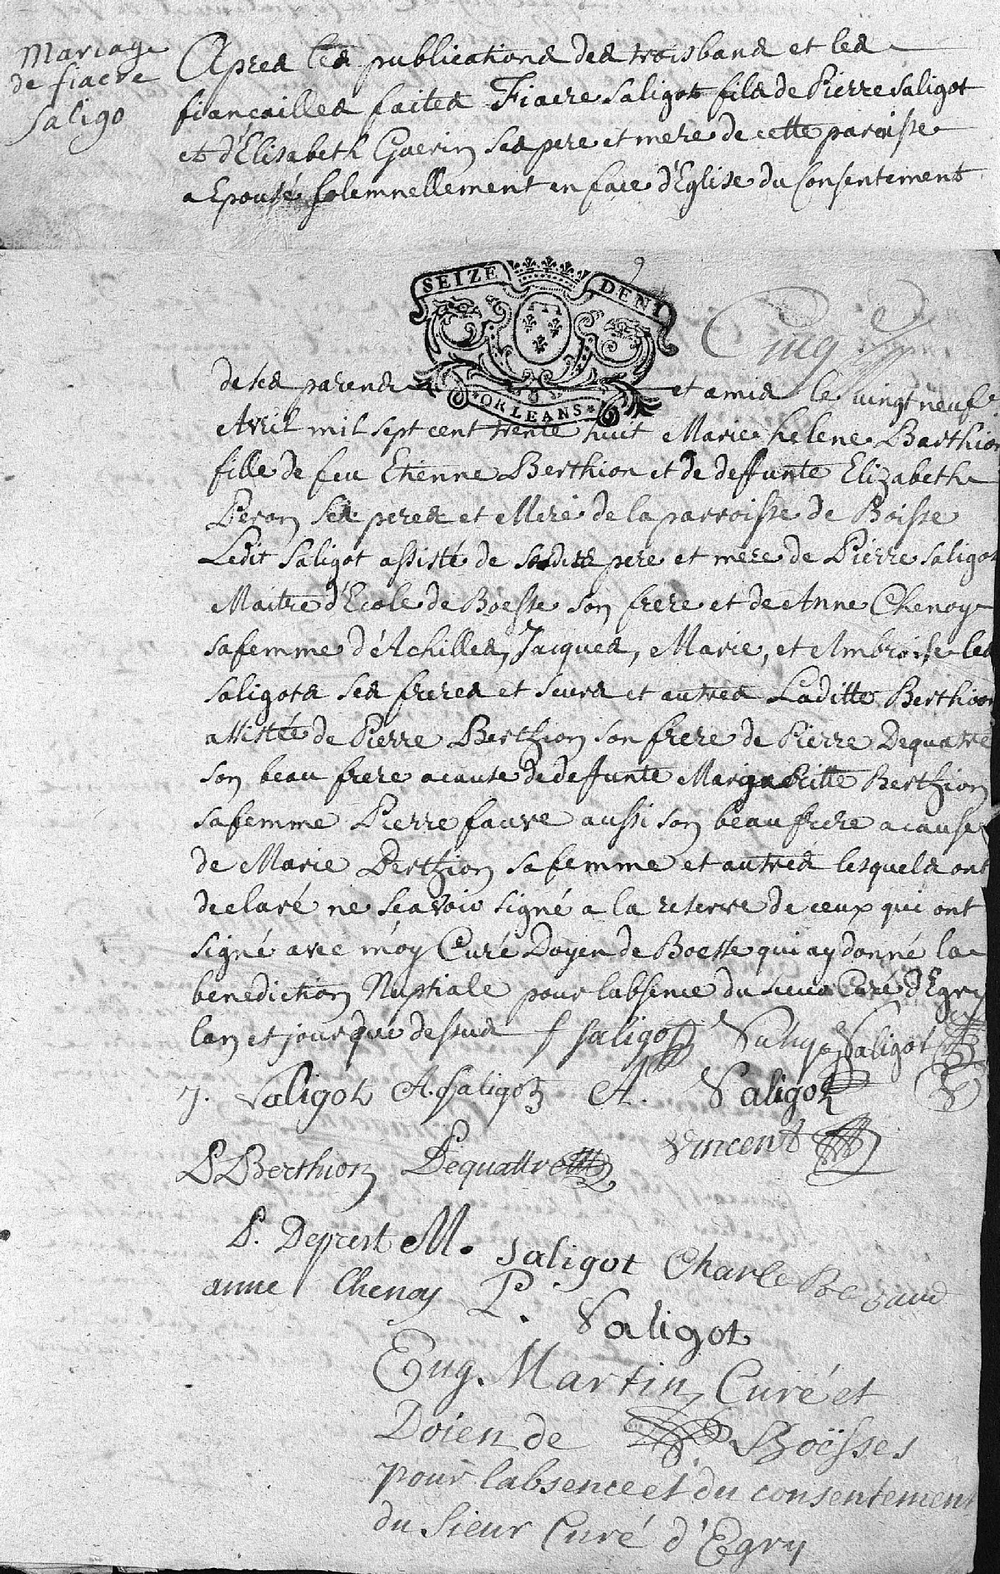 Mariage
de fiacre
saligo
Apres les publications des trois bans et les
fiancailles faites Fiacre Saligot fils de Pierre Saligot
et d'Elisabeth Guerin ses pere et mere de cette paroisse
a Epousé solemnellement en face d'Eglise du Consentement
SEIZE DENI
ORLEANS
Cinq
de ses parens et amis le vingt neuf
Avril mil sept cent trente huit Marie helene Barthion
fille de feu Etienne Berthion et de deffunte Elizabeth
Peron ses peres et Mere de la parroisse de Boisse
Ledit Saligot assisté de sesdits pere et mere de Pierre Saligot
Maitre d'Ecole de Boësse son frere et de Anne Chenoy
sa femme d'Achilles, Jacques, Marie, et Ambroise les
Saligots ses freres et seurs et autres Laditte Berthion
assistée de Pierre Berthion son frere de Pierre Dequatre
son beau frere a cause de deffunte Margueritte Berthion
sa femme Pierre faure aussi son beau frere a cause
de Marie Berthion sa femme et autres lesquels ont
declaré ne scavoir signé a la reserve de ceux qui ont
signé avec moy Curé Doyen de Boesse qui ay donné la
benediction Nuptiale pour l'absence du sieur Curé d'Egry
lan et jour que dessus f saligot Saligot
J. Saligot A. Saligot A. Saligot
P Berthion Dequattre Vincent
P. Deprest M. Saligot Charle Beraud
anne Chenoy P. Saligot
Eug. Martin, Curé et
Doien de Boësses
pour labsence et du consentement
du Sieur Curé d'Egry